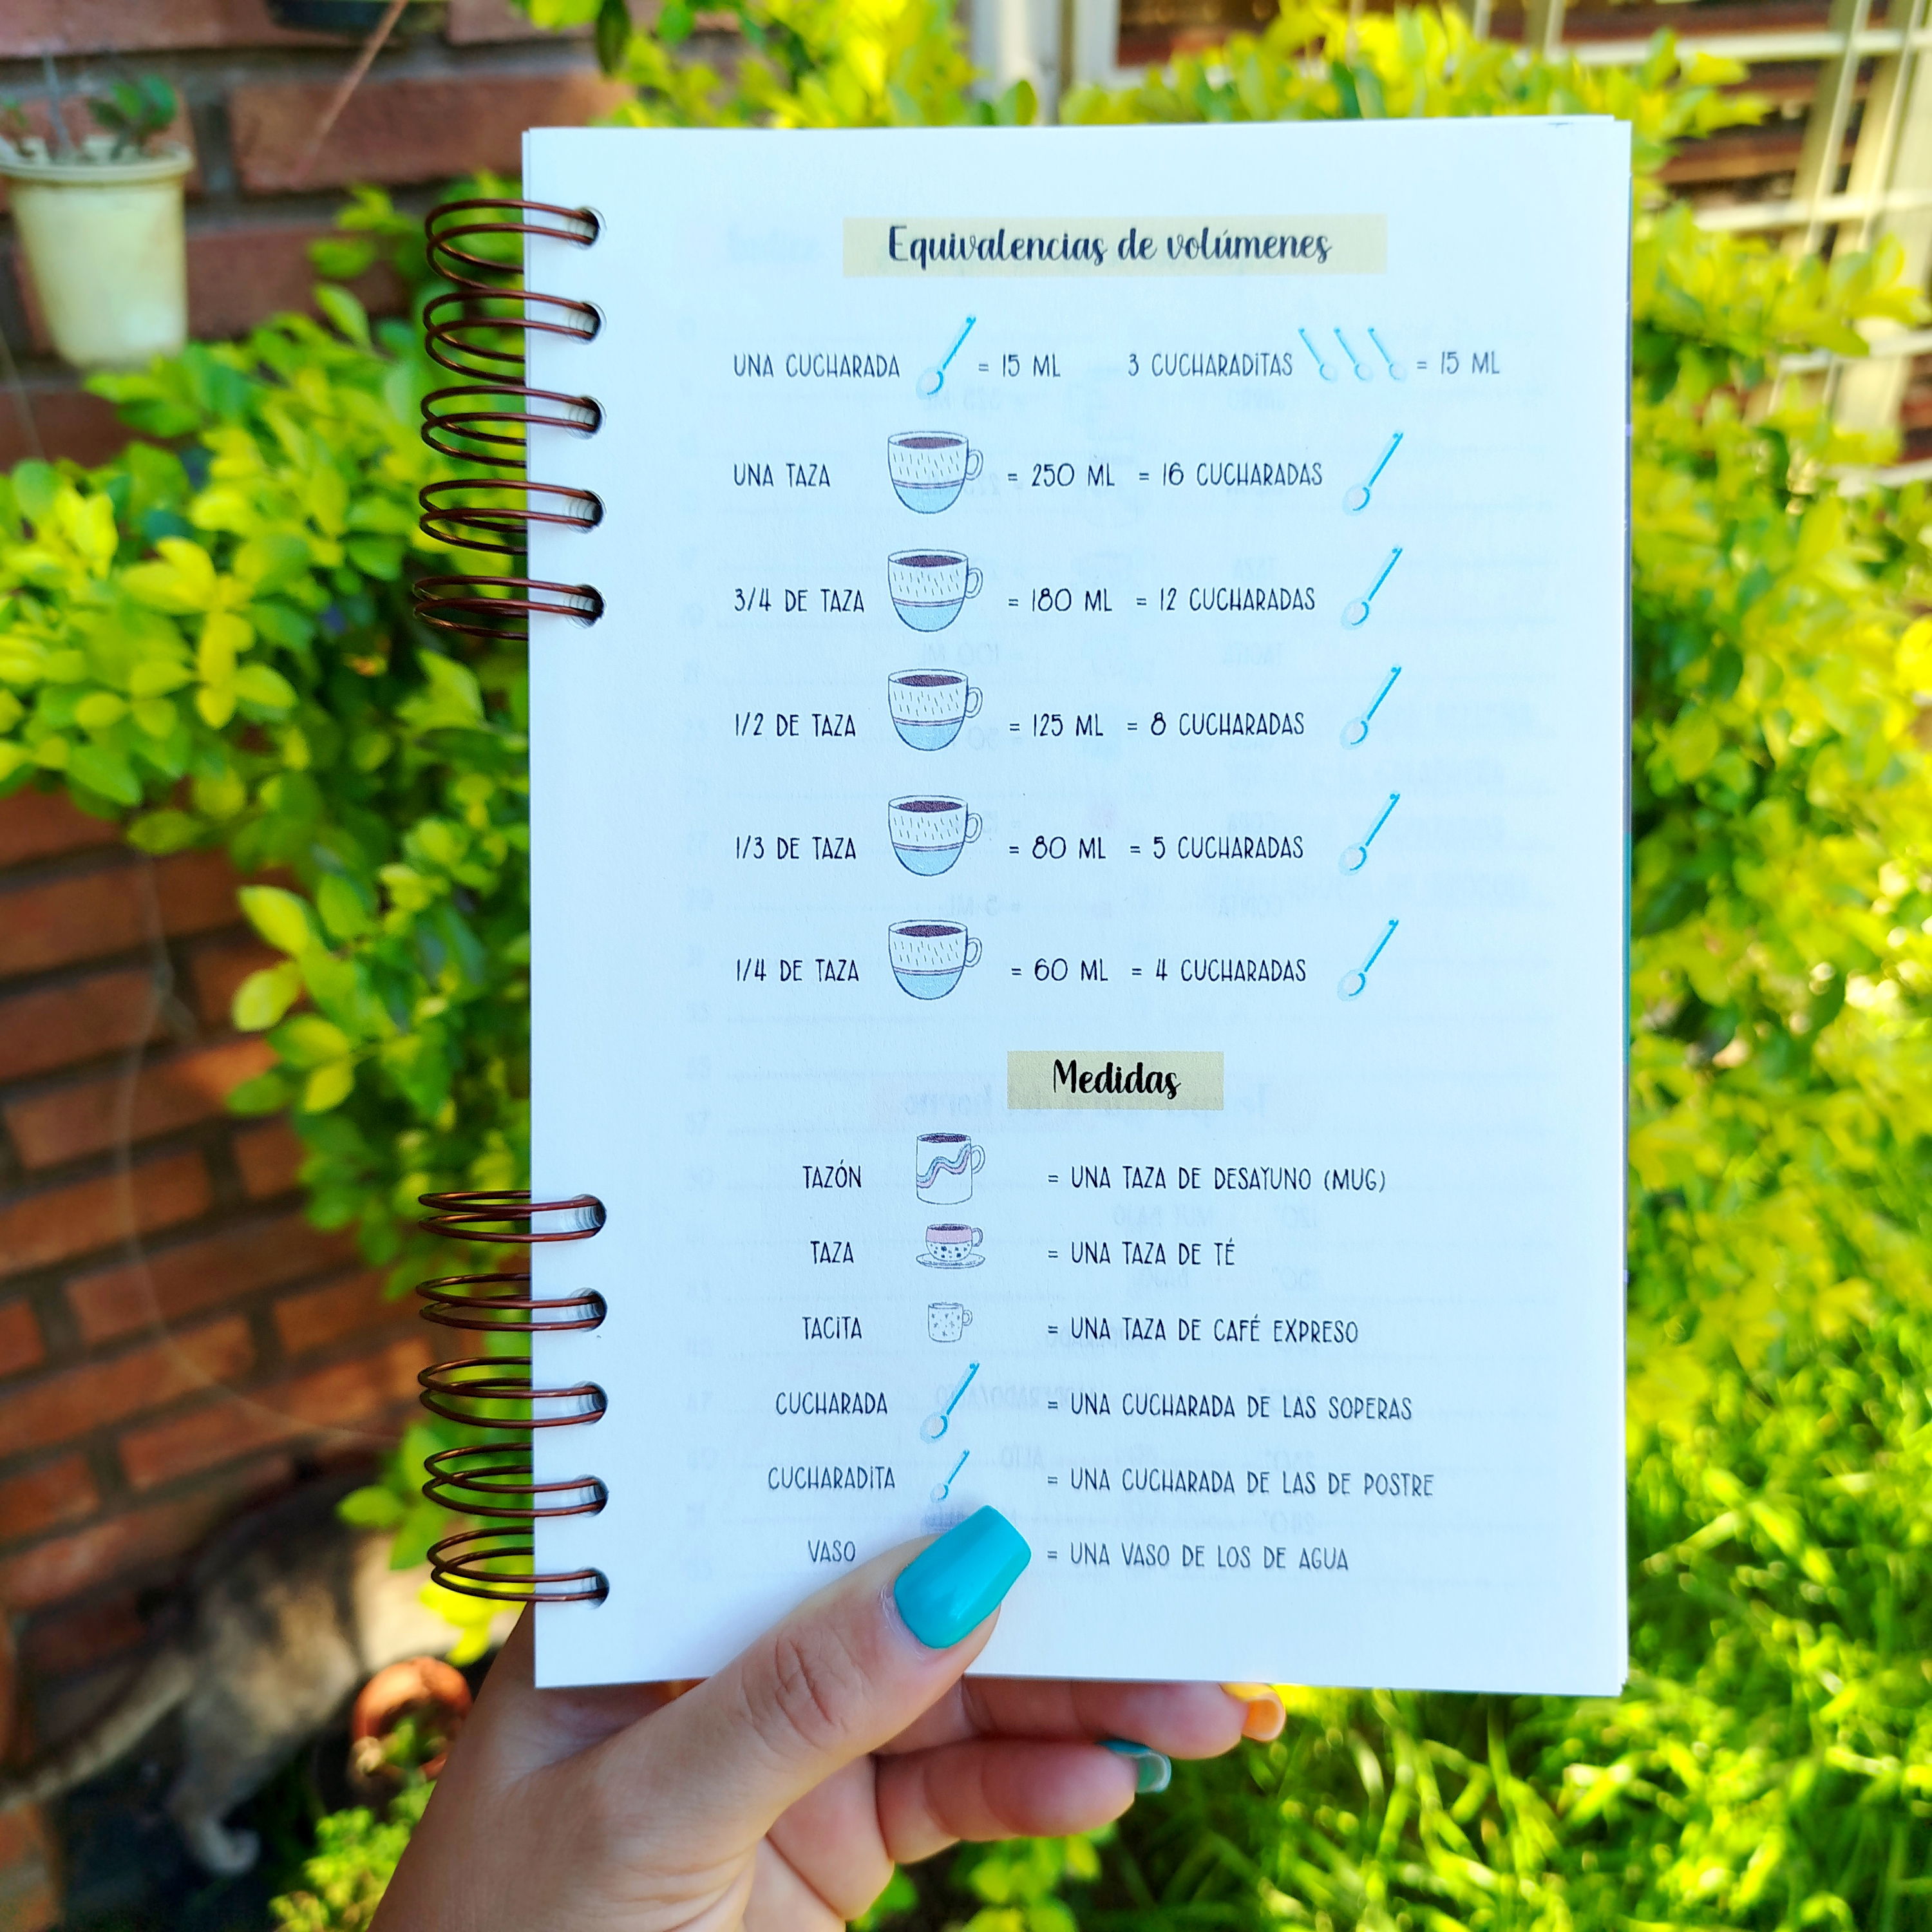 Equivalencias de volúmenes
UNA CUCHARADA = 15 ML 3 CUCHARADITAS = 15 ML
UNA TAZA = 250 ML = 16 CUCHARADAS
3/4 DE TAZA = 180 ML = 12 CUCHARADAS
1/2 DE TAZA = 125 ML = 8 CUCHARADAS
1/3 DE TAZA = 80 ML = 5 CUCHARADAS
1/4 DE TAZA = 60 ML = 4 CUCHARADAS
Medidas
TAZÓN = UNA TAZA DE DESAYUNO (MUG)
TAZA = UNA TAZA DE TÉ
TACITA = UNA TAZA DE CAFÉ EXPRESO
CUCHARADA = UNA CUCHARADA DE LAS SOPERAS
CUCHARADITA = UNA CUCHARADA DE LAS DE POSTRE
VASO = UNA VASO DE LOS DE AGUA